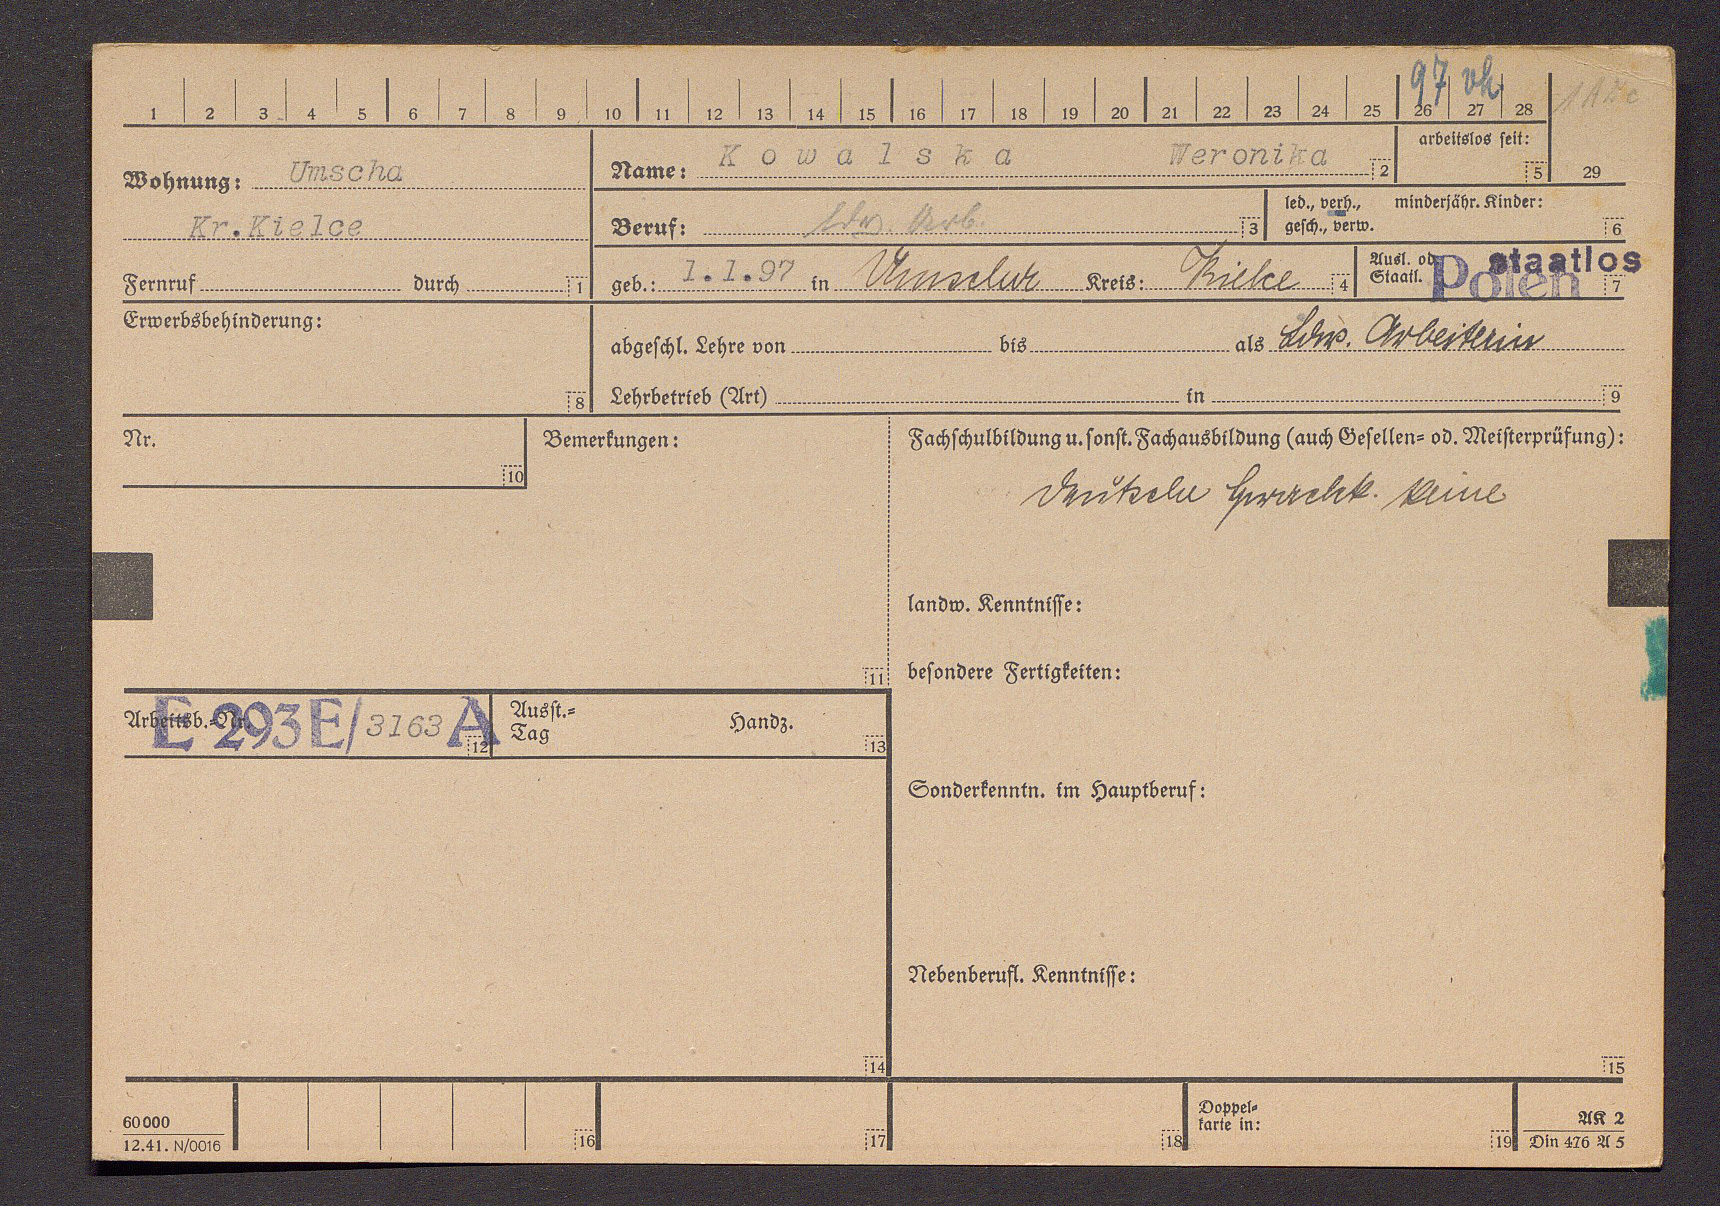 97 vh
1 2 3 4 5 6 7 8 9 10 11 12 13 14 15 16 17 18 19 20 21 22 23 24 25 26 27 28
29
Wohnung: Umscha
Kr.Kielce
Name: Kowalska Weronika 2
arbeitslos seit:
5
Beruf: Ldw. Arb. 3
led., verh., minderjähr. Kinder:
gesch., verw. 6
Fernruf durch 1
geb.: 1.1.97 in Umscha Kreis: Kielce 4
Ausl. od.
Staatl. Polen staatlos 7
Erwerbsbehinderung:
8
abgeschl. Lehre von bis als Ldw. Arbeiterin
Lehrbetrieb (Art) in 9
Nr.
10
Bemerkungen:
11
Fachschulbildung u. sonst. Fachausbildung (auch Gesellen= od. Meisterprüfung):
deutsche Sprachk. keine
landw. Kenntnisse:
besondere Fertigkeiten:
Arbeitsb.=Nr. E 293 E/3163 A 12
Ausst.=
Tag Handz. 13
14
Sonderkenntn. im Hauptberuf:
Nebenberufl. Kenntnisse:
15
60000
12.41. N/0016
16 17 18
Doppel=
karte in:
19
AK 2
Din 476 A 5